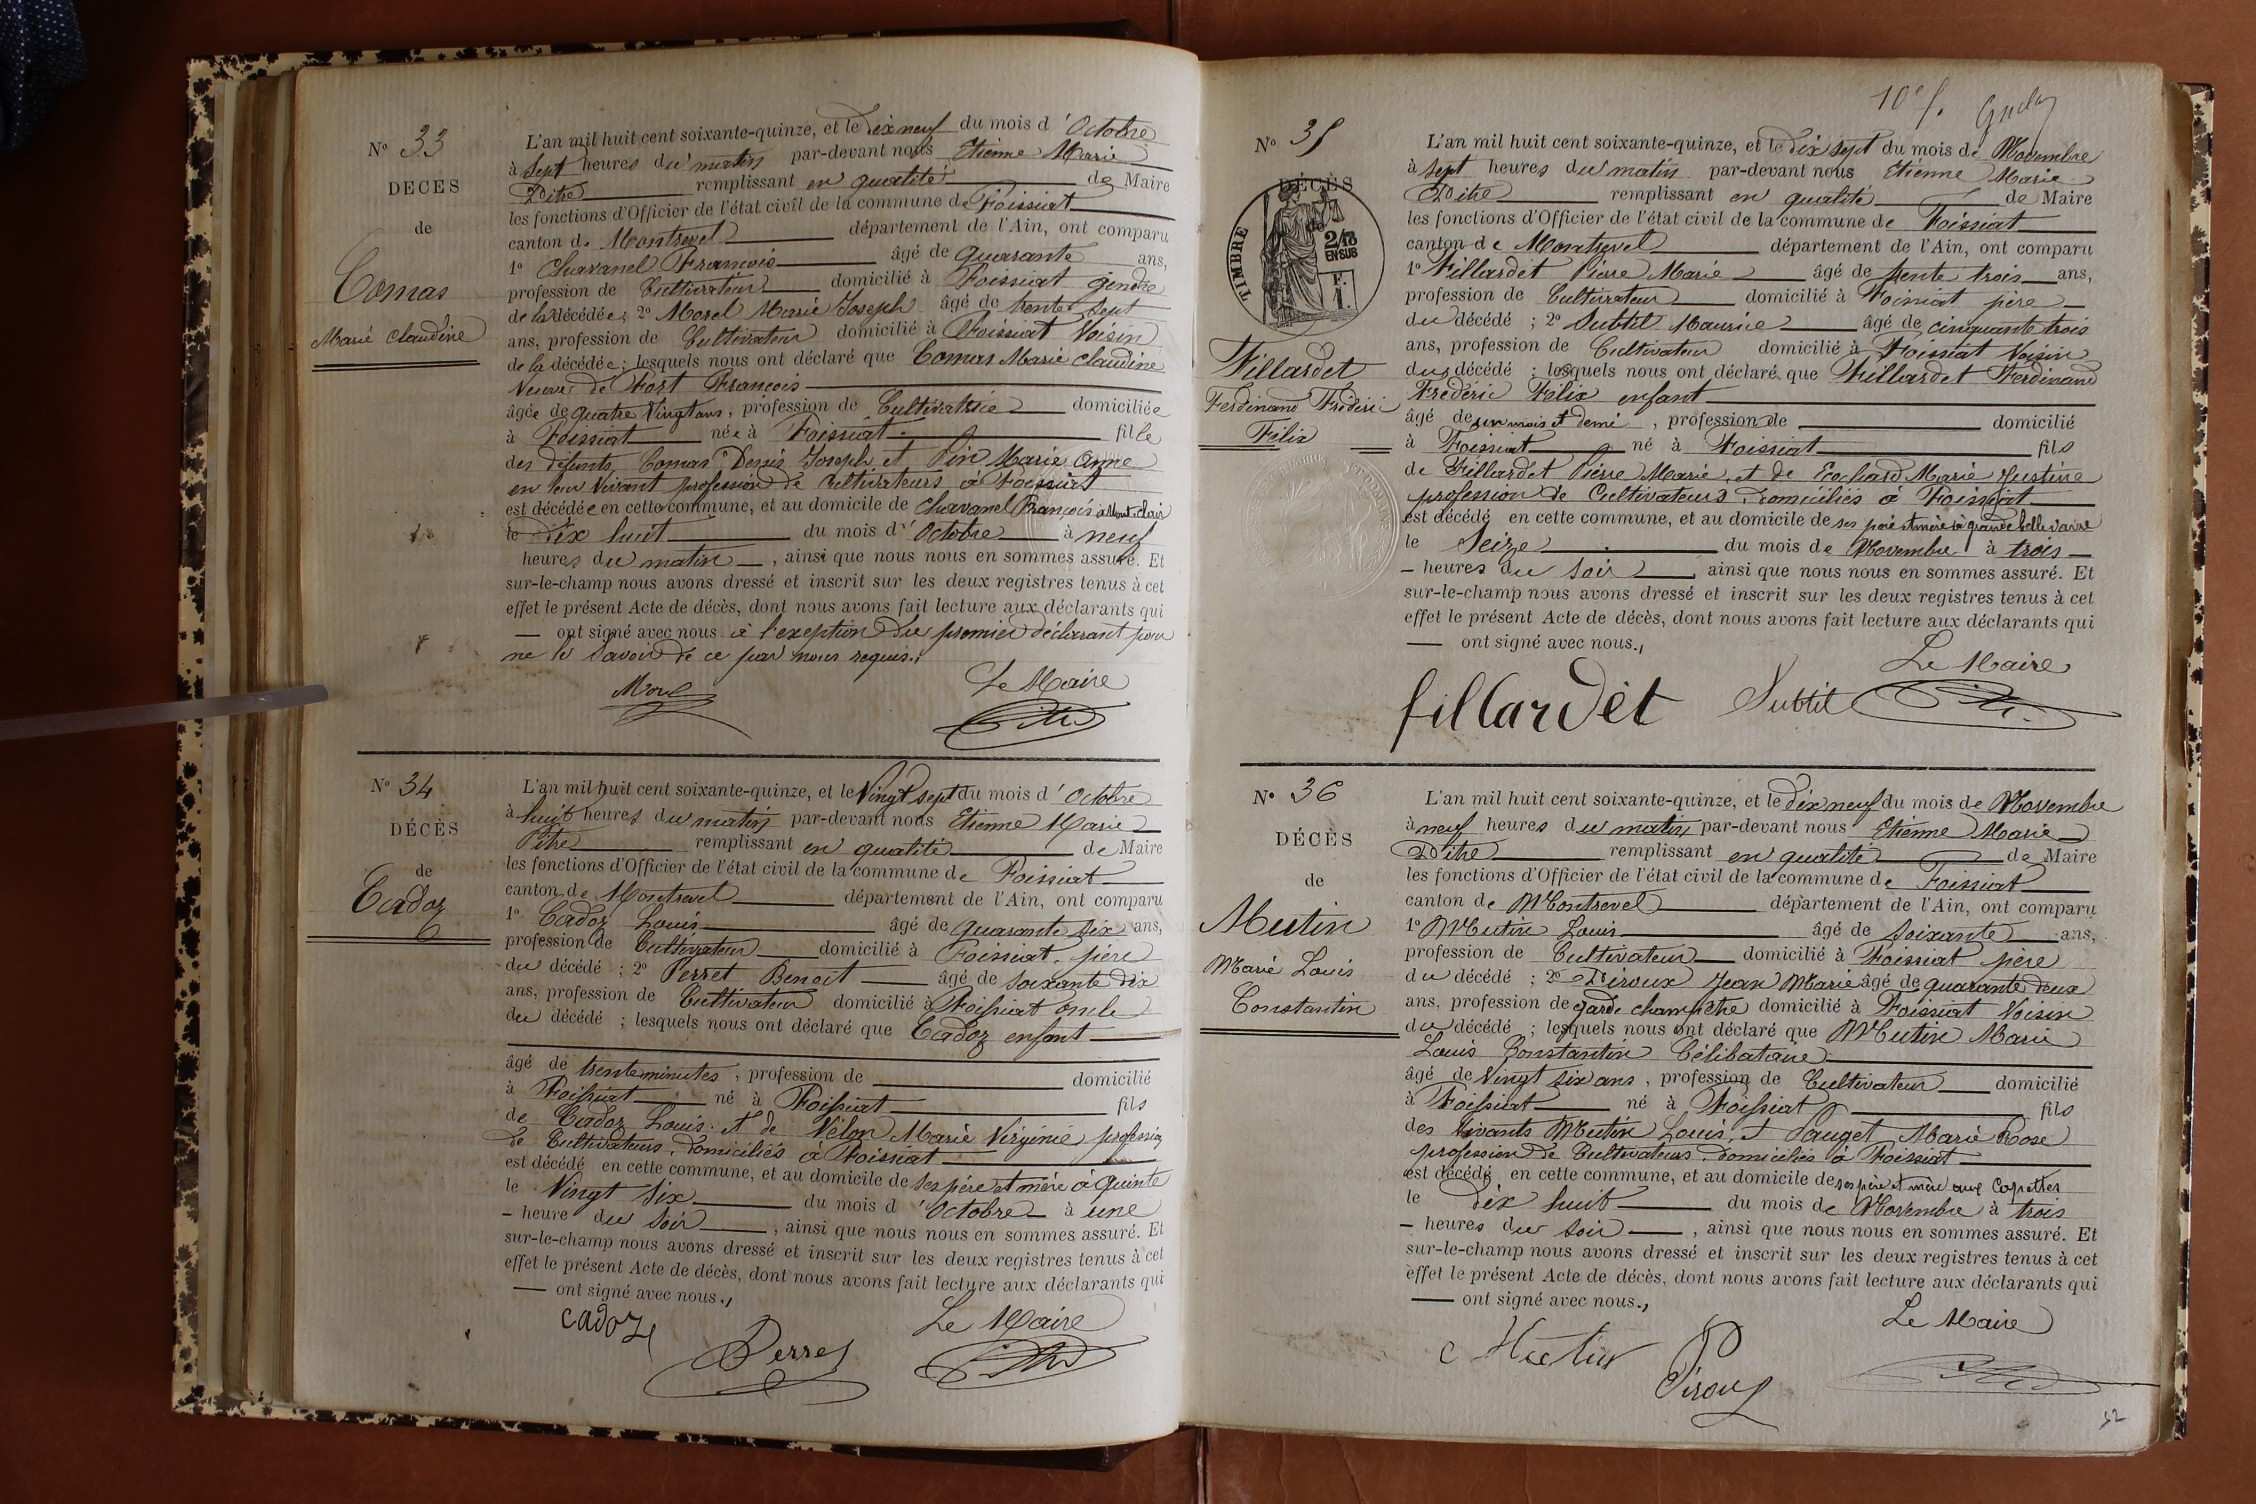 N° 33
DÉCÈS
de
Comas
Marie Claudine
L'an mil huit cent soixante-quinze, et le dix neuf du mois d'Octobre
à Sept heures du matin par-devant nous Etienne Marie
Pitre remplissant en qualité de Maire
les fonctions d'Officier de l'état civil de la commune de Foissiat
canton de Montrevel département de l'Ain, ont comparu
1° Chavanel François âgé de quarante ans,
profession de Cultivateur domicilié à Foissiat gendre
de la décédée ; 2° Morel Marie Joseph âgé de trente sept
ans, profession de Cultivateur domicilié à Foissiat Voisin
de la décédée ; lesquels nous ont déclaré que Comas Marie Claudine
Veuve de Fort François
âgée de quatre Vingt ans, profession de Cultivatrice domiciliée
à Foissiat née à Foissiat fille
des défunts Comas Denis Joseph et Pin Marie Anne
en leur Vivant profession de Cultivateurs à Foissiat
est décédée en cette commune, et au domicile de Chavanel François à Mont-clair
le Dix huit du mois d'Octobre à neuf
heures du matin, ainsi que nous nous en sommes assuré. Et
sur-le-champ nous avons dressé et inscrit sur les deux registres tenus à cet
effet le présent Acte de décès, dont nous avons fait lecture aux déclarants qui
ont signé avec nous à l'exeption du premier déclarant pour
ne le Savoir de ce par nous requis.
Le Maire
Morel
N° 34
DÉCÈS
de
Cadoz
L'an mil huit cent soixante-quinze, et le Vingt sept du mois d'Octobre
à huit heures du matin par-devant nous Etienne Marie
Pitre remplissant en qualité de Maire
les fonctions d'Officier de l'état civil de la commune de Foissiat
canton de Montrevel département de l'Ain, ont comparu
1° Cadoz Louis âgé de quarante six ans,
profession de Cultivateur domicilié à Foissiat père
du décédé ; 2° Perret Benoit âgé de soixante dix
ans, profession de Cultivateur domicilié à Foissiat oncle
du décédé ; lesquels nous ont déclaré que Cadoz enfant
âgé de trente minutes, profession de domicilié
à Foissiat né à Foissiat fils
de Cadoz Louis et de Vélon Marie Virginie profession
de Cultivateurs, domiciliés à Foissiat
est décédé en cette commune, et au domicile de ses père et mère à quinte
le Vingt six du mois d'Octobre à une
heure du soir, ainsi que nous nous en sommes assuré. Et
sur-le-champ nous avons dressé et inscrit sur les deux registres tenus à cet
effet le présent Acte de décès, dont nous avons fait lecture aux déclarants qui
ont signé avec nous.
Le Maire
cadoz
Perret
10e f.
N° 35
DÉCÈS
de
TIMBRE
2/10
EN SUS
F.
1.
Fillardet
Ferdinand Fréderic
Félix
L'an mil huit cent soixante-quinze, et le dix sept du mois de Novembre
à sept heures du matin par-devant nous Etienne Marie
Pitre remplissant en qualité de Maire
les fonctions d'Officier de l'état civil de la commune de Foissiat
canton de Montrevel département de l'Ain, ont comparu
1° Fillardet Pierre Marie âgé de trente trois ans,
profession de Cultivateur domicilié à Foissiat père
du décédé ; 2° Subtil Maurice âgé de cinquante trois
ans, profession de Cultivateur domicilié à Foissiat Voisin
du décédé ; lesquels nous ont déclaré que Fillardet Ferdinand
Frédéric Félix enfant
âgé de un mois et demi, profession de domicilié
à Foissiat né à Foissiat fils
de Fillardet Pierre Marie, et de Eochard Marie Justine
profession de Cultivateurs domiciliés à Foissiat
est décédé en cette commune, et au domicile de ses père et mère à grande belle vavre
le Seize du mois de Novembre à trois
heures du soir ainsi que nous nous en sommes assuré. Et
sur-le-champ nous avons dressé et inscrit sur les deux registres tenus à cet
effet le présent Acte de décès, dont nous avons fait lecture aux déclarants qui
ont signé avec nous.
Le Maire
fillardèt Subtil
N° 36
DÉCÈS
de
Mutin
Marie Louis
Constantin
L'an mil huit cent soixante-quinze, et le dix neuf du mois de Novembre
à neuf heures du matin par-devant nous Etienne Marie
Pitre remplissant en qualité de Maire
les fonctions d'Officier de l'état civil de la commune de Foissiat
canton de Montrevel département de l'Ain, ont comparu
1° Mutin Louis âgé de soixante ans,
profession de Cultivateur domicilié à Foissiat père
du décédé ; 2° Piroux Jean Marie âgé de quarante deux
ans, profession de garde champêtre domicilié à Foissiat Voisin
du décédé ; lesquels nous ont déclaré que Mutin Marie
Louis Constantin Célibataire
âgé de Vingt six ans, profession de Cultivateur domicilié
à Foissiat né à Foissiat fils
des Vivants Mutin Louis, et Pauget Marie Rose
profession de Cultivateurs domiciliés à Foissiat
est décédé en cette commune, et au domicile de ses père et mère aux Copettes
le Dix huit du mois de Novembre à trois
heures du soir, ainsi que nous nous en sommes assuré. Et
sur-le-champ nous avons dressé et inscrit sur les deux registres tenus à cet
effet le présent Acte de décès, dont nous avons fait lecture aux déclarants qui
ont signé avec nous.
Le Maire
Mutin
Piroux
52